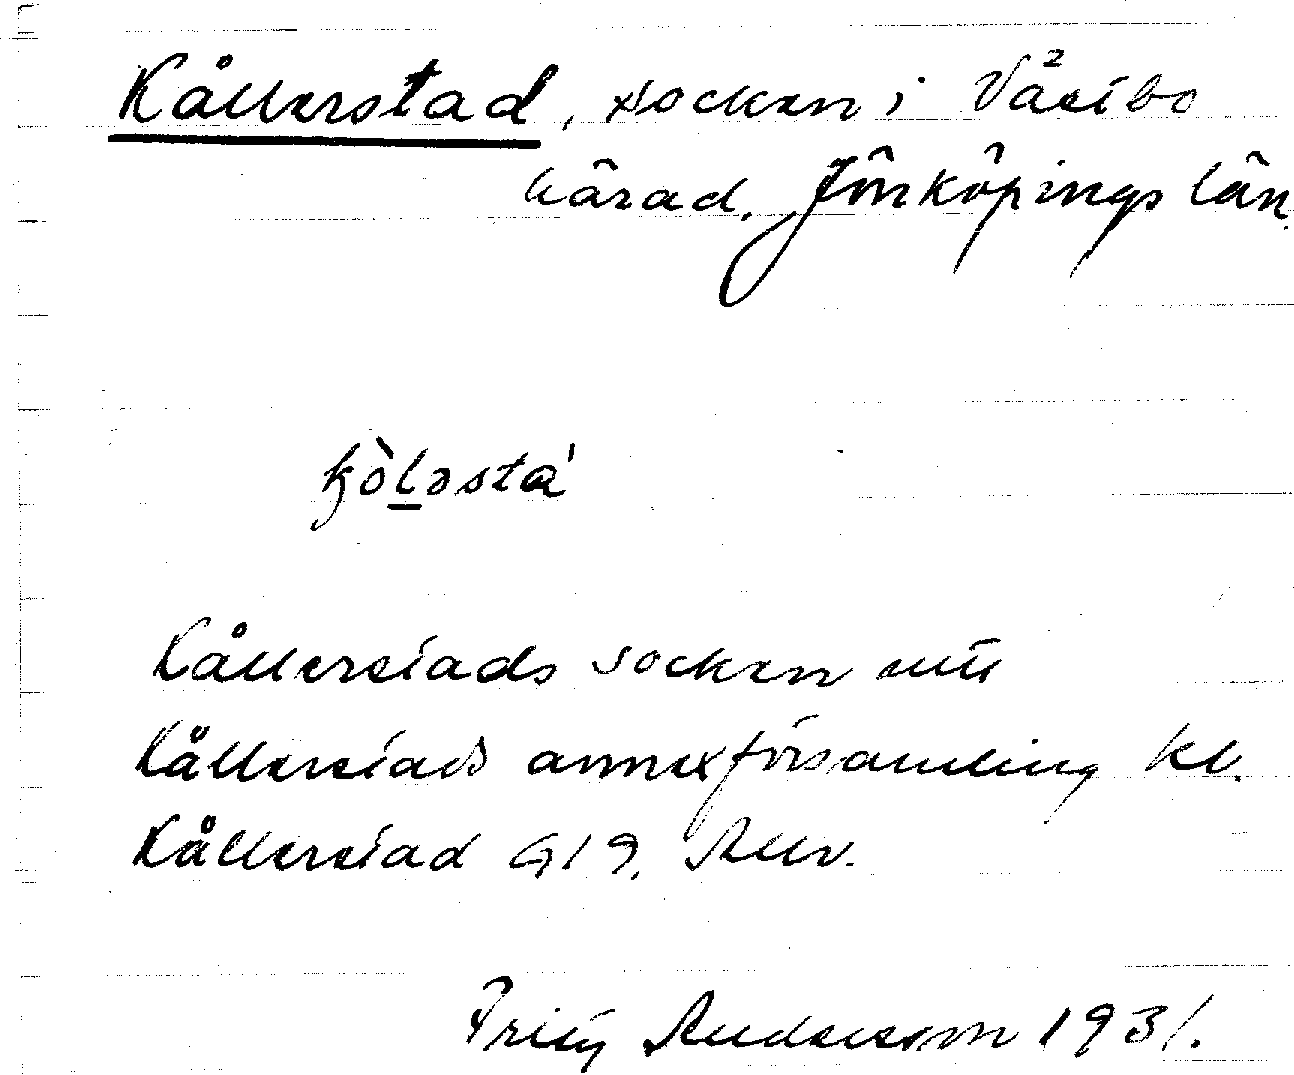 Kållerstad, socken i Västbo
härad, Jönköpings län.
Kållerstads socken
Kållerstads annexförsamling kl.
Kållerstad
Anderson 1931.